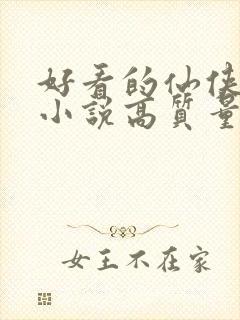 好看的仙侠
小說高質量
女王不在家